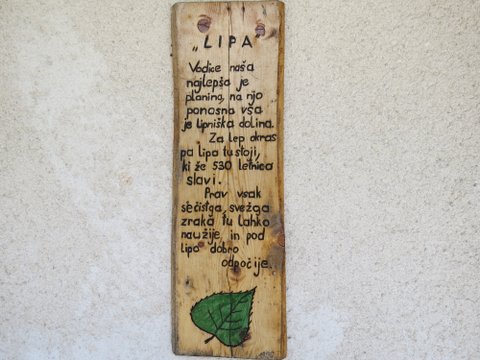 „LIPA“
Vodice naša
najlepša je
planina, na njo
ponosna vsa
je lipniška dolina.
Za lep okras
pa lipa tu stoji,
ki že 530 letnico
slavi.
Prav vsak
sečistga, svežga
zraka tu lahko
naužije, in pod
lipo dobro
odpočije.